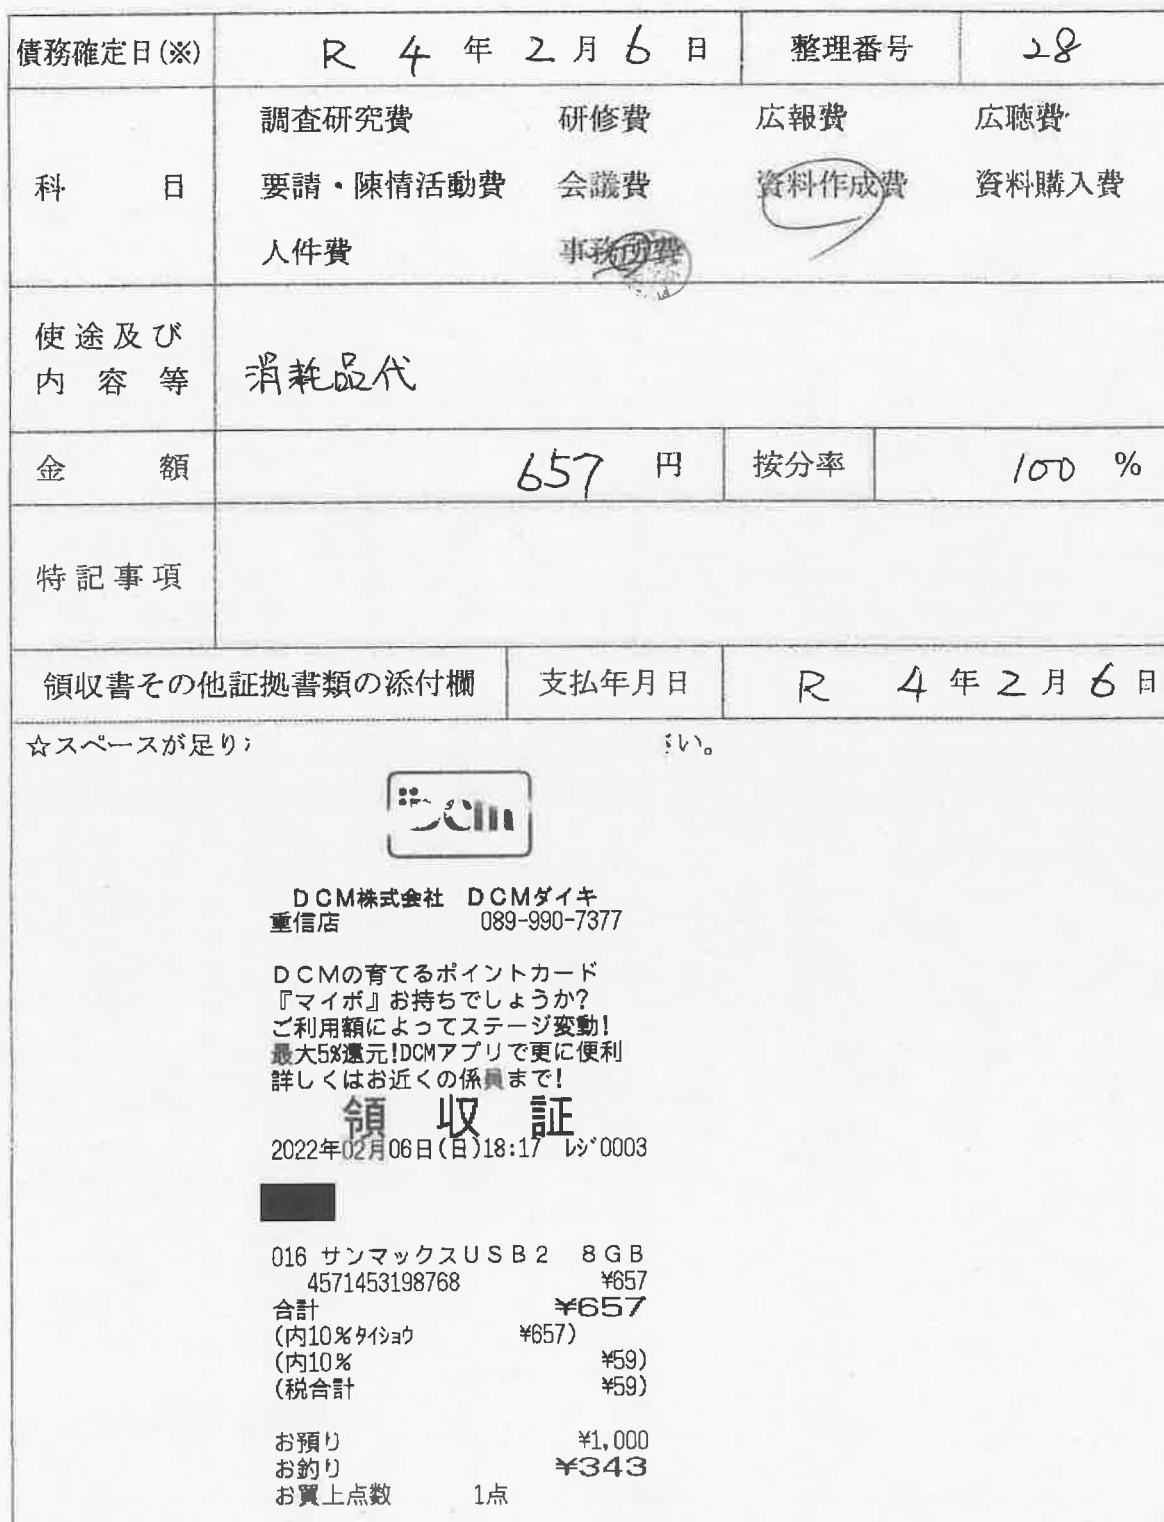 債務確定日(※) R 4 年 2 月 6 日 整理番号 28
調査研究費 研修費 広報費 広聴費
科 目 要請・陳情活動費 会議費 資料作成費 資料購入費
人件費 事務所費
使途及び
内容等 消耗品代
金 額 657 円 按分率 100 %
特記事項
領収書その他証拠書類の添付欄 支払年月日 R 4 年 2 月 6 日
☆スペースが足り い。
DCM
DCM株式会社 DCMダイキ
重信店 089-990-7377
DCMの育てるポイントカード
『マイボ』お持ちでしょうか?
ご利用額によってステージ変動!
最大5%還元!DCMアプリで更に便利
詳しくはお近くの係員まで!
領 収 証
2022年02月06日(日)18:17 レジ0003
016 サンマックスUSB2 8GB
4571453198768 ¥657
合計 ¥657
(内10%タイショウ ¥657)
(内10% ¥59)
(税合計 ¥59)
お預り ¥1,000
お釣り ¥343
お買上点数 1点